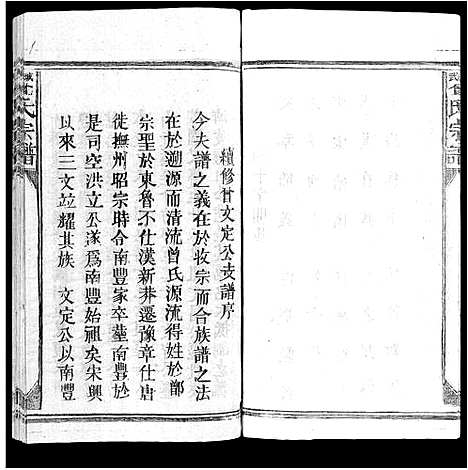 續修曾文定公支譜序
今夫譜之義在於收宗而合族譜之法
在於遡源而清流曾氏源流得姓於鄫
宗聖於東魯不仕漢新莽遷豫章仕唐
徙撫州昭宗時令南豐家卒塟南豐於
是司空洪立公遂爲南豐始祖矣宋興
以來三文並耀其族 文定公以南豐
曾氏宗譜
氏宗譜